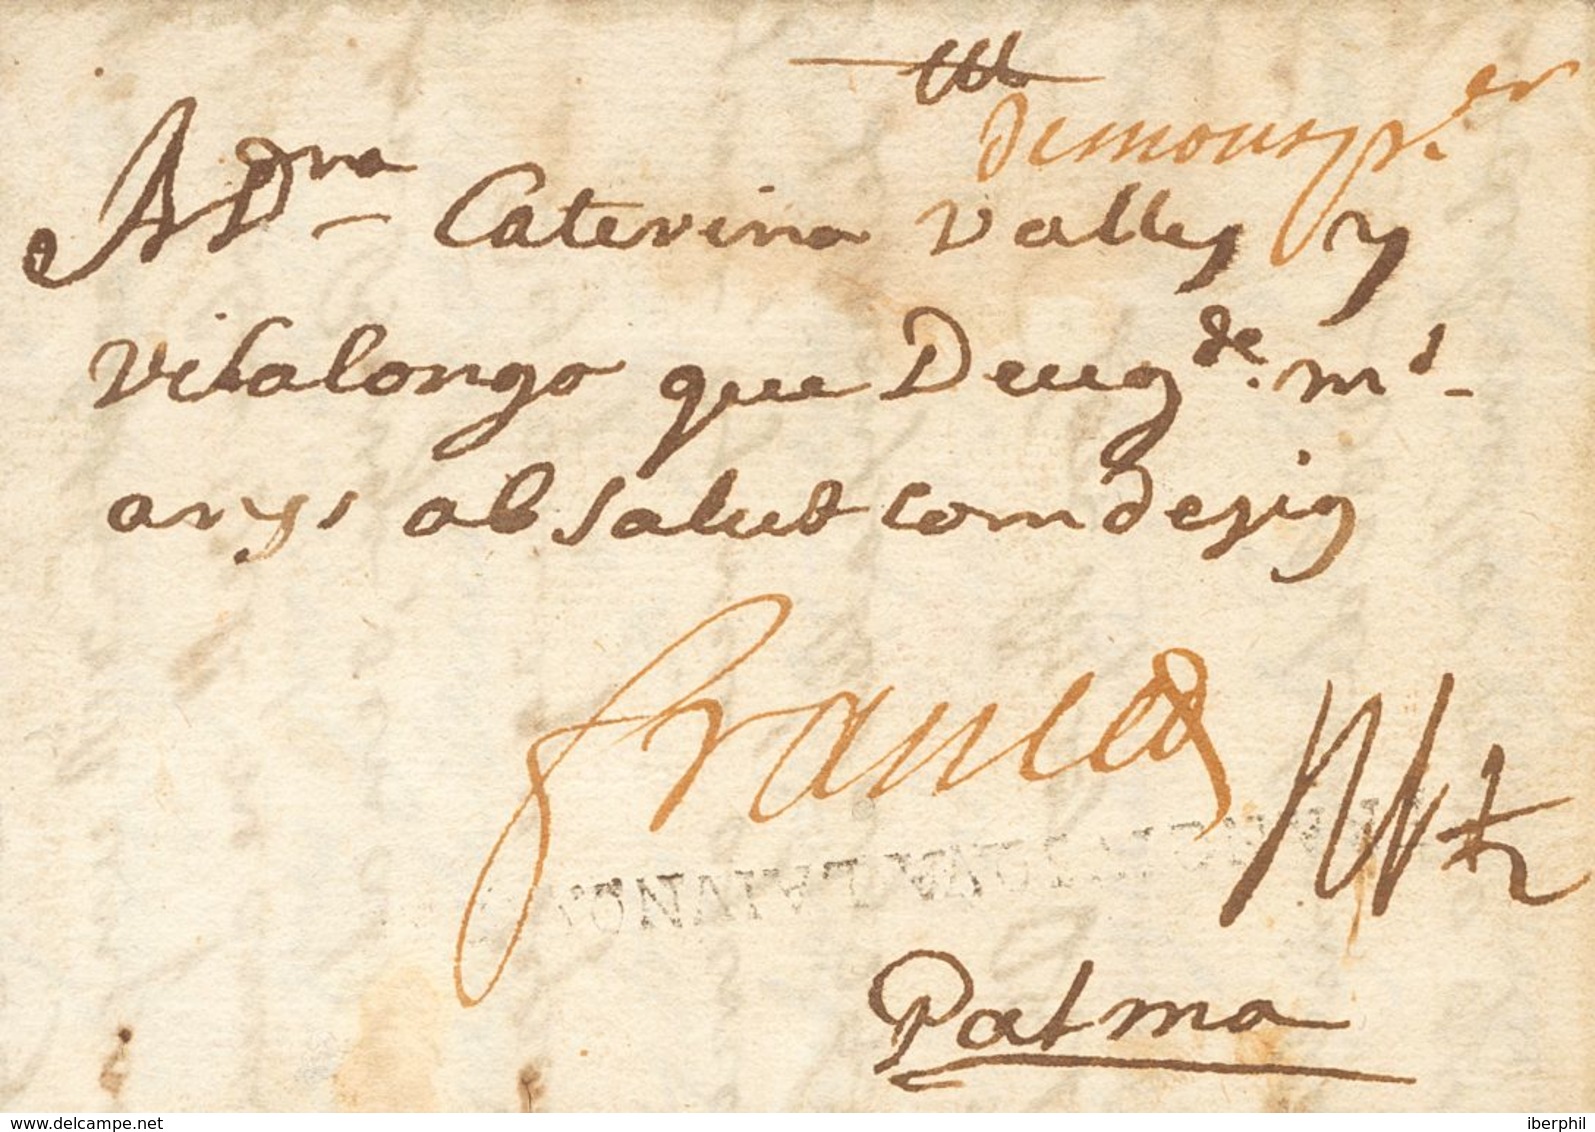 demonspr.er
A Dna Caterina Valls y
Vilalonga que Deu g.de m.s
anys ab Salut com desig
franco
Palma
www.delcampe.net
iberphil